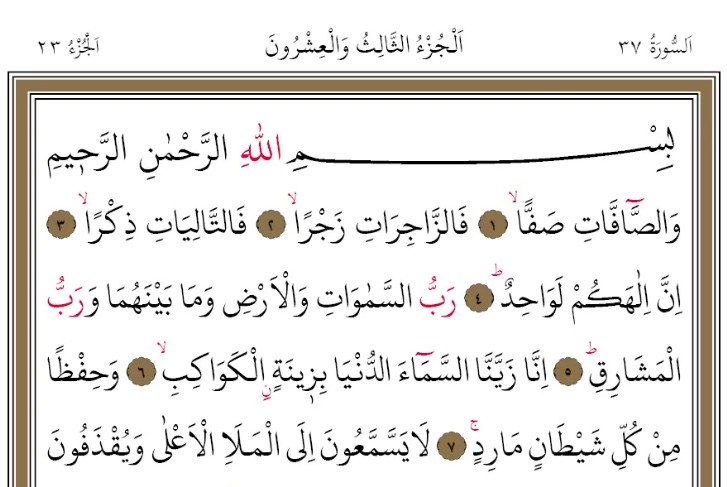 اَلسُّورَةُ ٣٧ اَلْجُزْءُ الثَّالِثُ وَالْعِشْرُونَ اَلْجُزْءُ ٢٣
بِسْمِ اللّٰهِ الرَّحْمٰنِ الرَّحٖيمِ
وَالصَّٓافَّاتِ صَفًّاۙ ﴿١﴾ فَالزَّاجِرَاتِ زَجْرًاۙ ﴿٢﴾ فَالتَّالِيَاتِ ذِكْرًاۙ ﴿٣﴾
اِنَّ اِلٰهَكُمْ لَوَاحِدٌؕ ﴿٤﴾ رَبُّ السَّمٰوَاتِ وَالْاَرْضِ وَمَا بَيْنَهُمَا وَرَبُّ
الْمَشَارِقِؕ ﴿٥﴾ اِنَّا زَيَّنَّا السَّمَٓاءَ الدُّنْيَا بِزٖينَةٍۨ الْكَوَاكِبِۙ ﴿٦﴾ وَحِفْظًا
مِنْ كُلِّ شَيْطَانٍ مَارِدٍۚ ﴿٧﴾ لَا يَسَّمَّعُونَ اِلَى الْمَلَاِ الْاَعْلٰى وَيُقْذَفُونَ